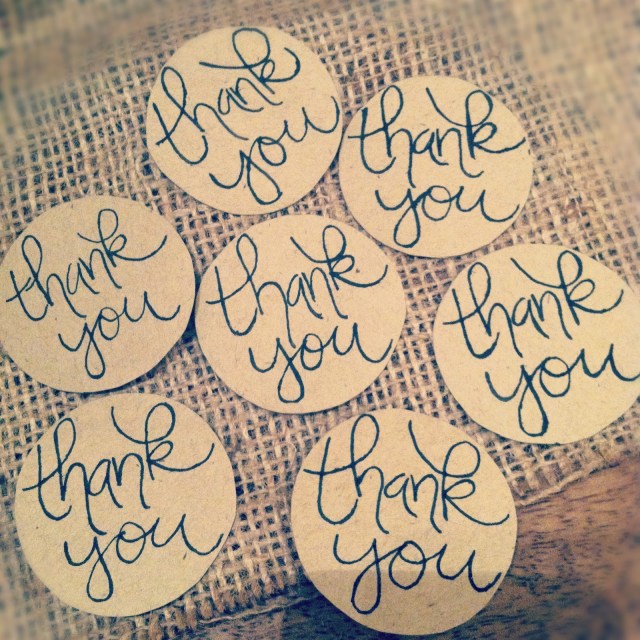 thank
you
thank
you
thank
you
thank
you
thank
you
thank
you
thank
you